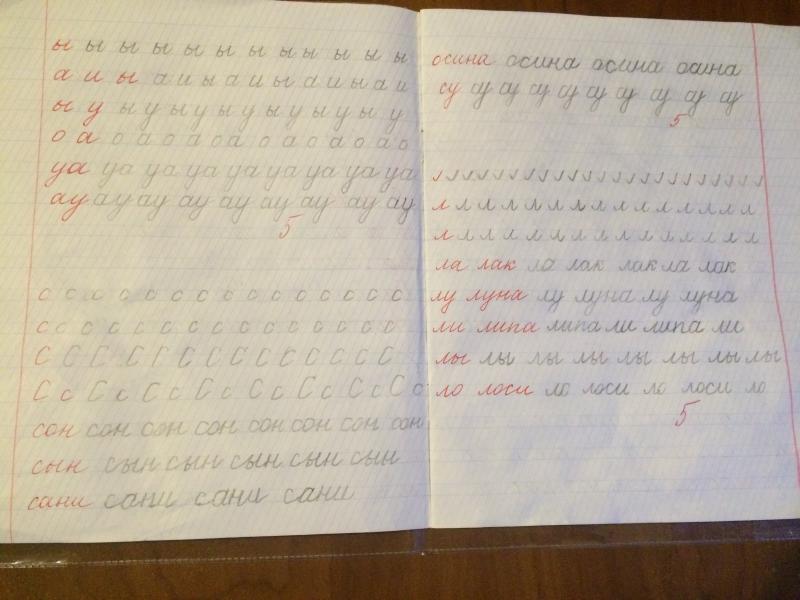 ы ы ы ы ы ы ы ы ы ы ы ы ы
а и ы а и ы а и ы а и ы а и
ы у ы у ы у ы у ы у ы у ы у
о а о а о а о а о а о а о а о
уа уа уа уа уа уа уа уа уа
ау ау ау ау ау ау ау ау ау
5
с с с с с с с с с с с с с с с
с с с с с с с с с с с с с с
С С С С С С С С С С С С С
С с С с С с С с С с С с С с С с
сон сон сон сон сон сон сон сон
сын сын сын сын сын сын
сани сани сани сани
осина осина осина осина
су су су су су су су су су су
5
л л л л л л л л л л л л л л л
л л л л л л л л л л л л л л
ла лак ла лак лак ла лак
лу луна лу луна лу луна
ли липа липа ли липа ли
лы лы лы лы лы лы лы лы
ло лоси ло лоси ло лоси ло
5